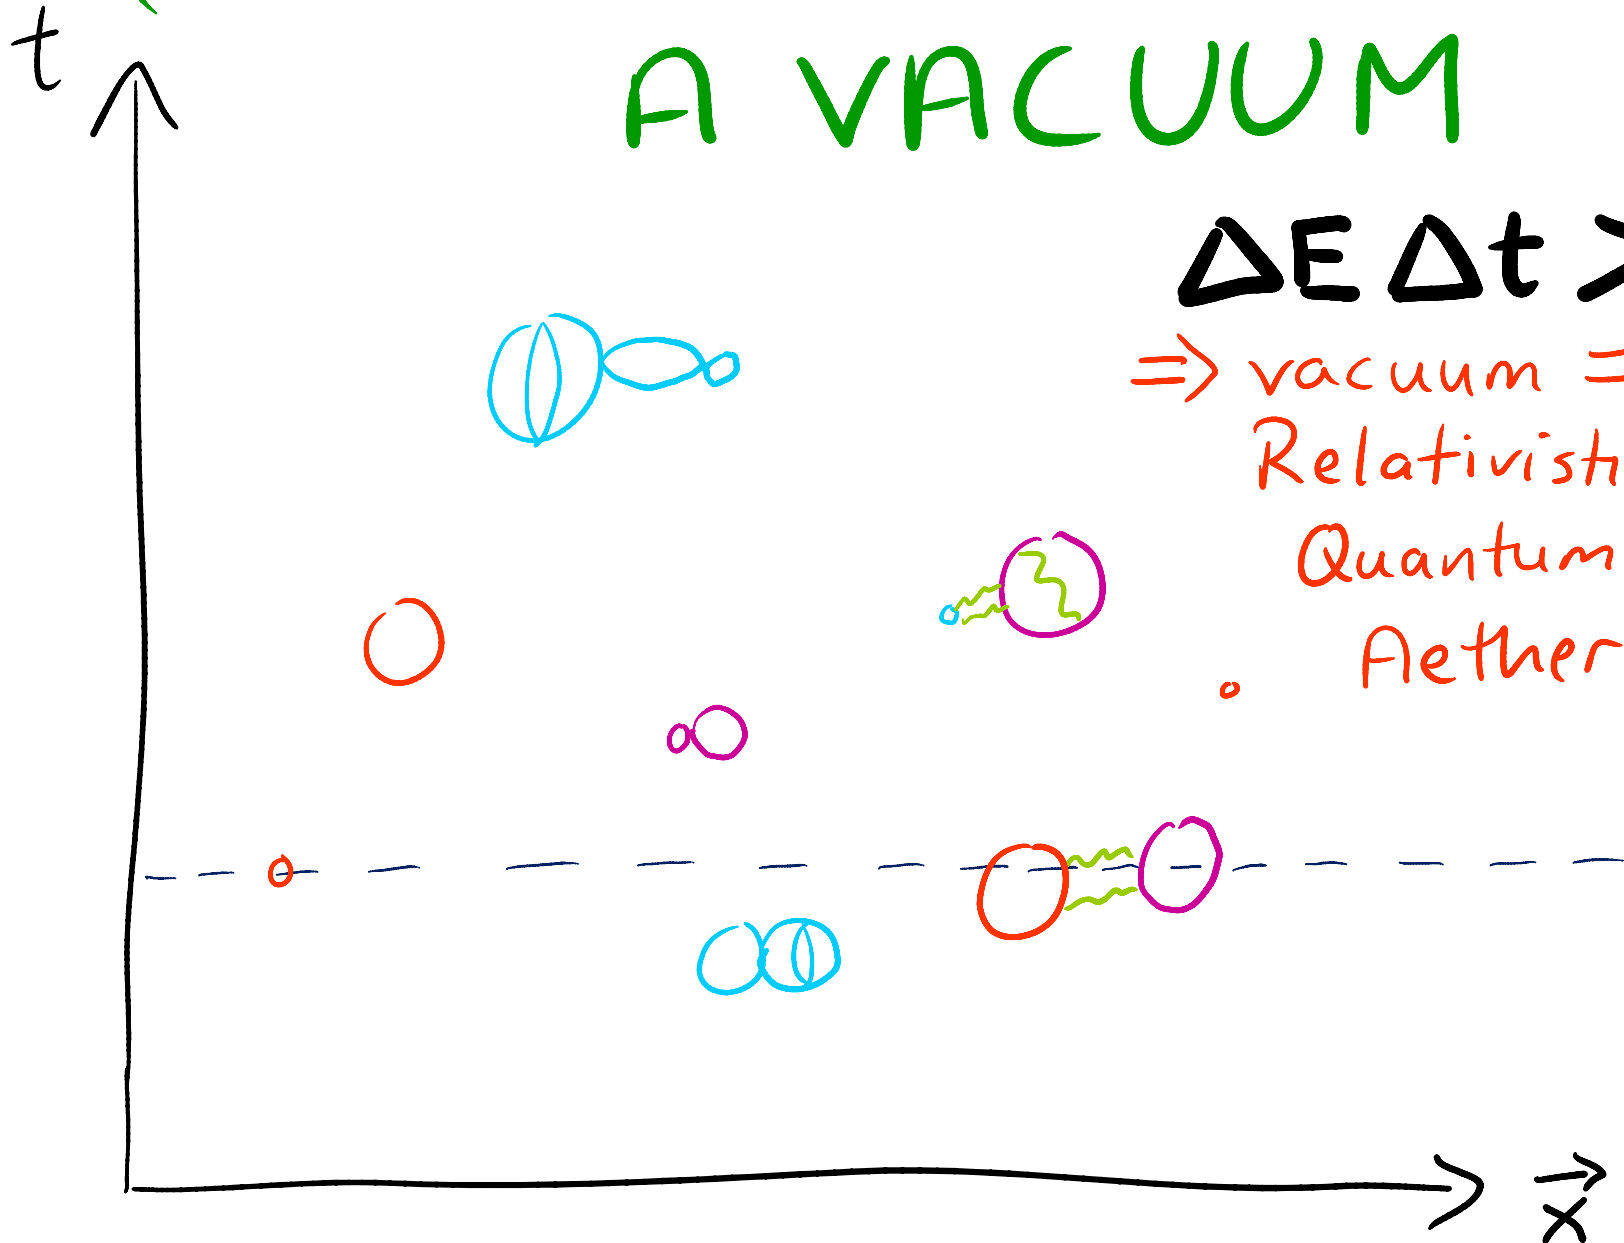 t
A VACUUM
ΔE Δt >
⇒ vacuum =
Relativisti
Quantum
Aether
x⃗